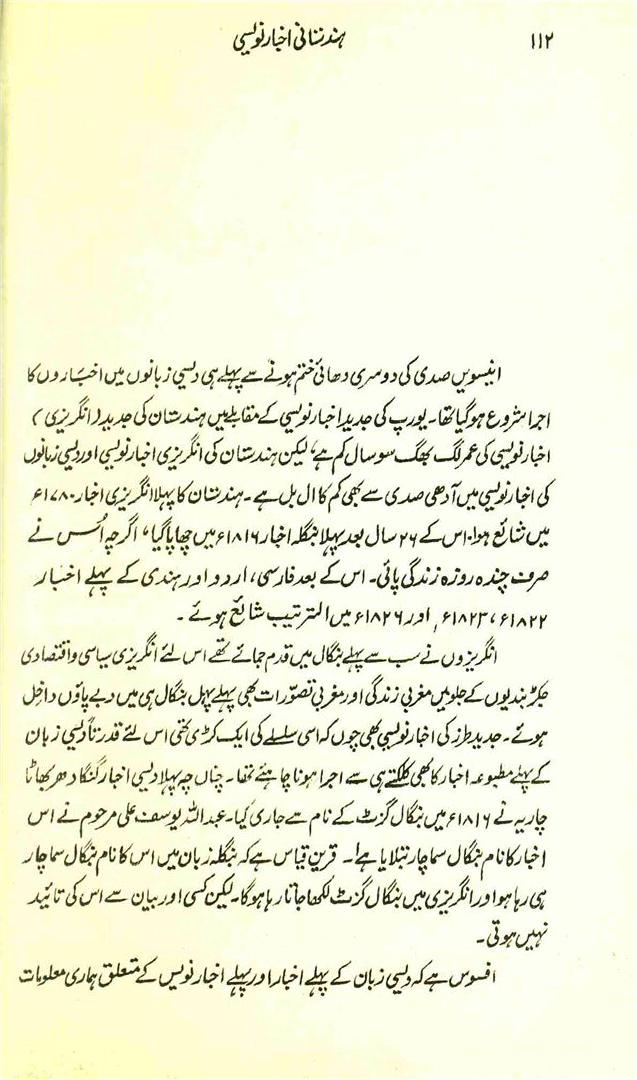 ۱۱۲ ہندستانی اخبار نویسی
انیسویں صدی کی دوسری دھائی ختم ہونے سے پہلے ہی دیسی زبانوں میں اخباروں کا
اجرا شروع ہو گیا تھا۔ یورپ کی جدید اخبار نویسی کے مقابلے میں ہندستان کی جدید (انگریزی)
اخبار نویسی کی عمر لگ بھگ سو سال کم ہے، لیکن ہندستان کی انگریزی اخبار نویسی اور دیسی زبانوں
کی اخبار نویسی میں آدھی صدی سے بھی کم کا ال بل ہے۔ ہندستان کا پہلا انگریزی اخبار ۱۷۸۰ء
میں شائع ہوا۔ اس کے ۲۶ سال بعد پہلا بنگلہ اخبار ۱۸۱۶ء میں چھاپا گیا، اگرچہ اُس نے
صرف چند روزہ زندگی پائی۔ اس کے بعد فارسی، اردو اور ہندی کے پہلے اخبار
۱۸۲۲ء، ۱۸۲۳ء، اور ۱۸۲۶ء میں الترتیب شائع ہوئے۔
انگریزوں نے سب سے پہلے بنگال میں قدم جمائے تھے اس لئے انگریزی سیاسی و اقتصادی
جکڑ بندیوں کے جلو میں مغربی زندگی اور مغربی تصوّرات بھی پہلے پہل بنگال ہی میں دبے پاؤں داخل
ہوئے۔ جدید طرز کی اخبار نویسی بھی چوں کہ اسی سلسلے کی ایک کڑی تھی اس لئے قدرتاً دیسی زبان
کے پہلے مطبوعہ اخبار کا بھی کلکتے ہی سے اجرا ہونا چاہئے تھا۔ چناں چہ پہلا دیسی اخبار گنگا دھر بھاٹا
چاریہ نے ۱۸۱۶ء میں بنگال گزٹ کے نام سے جاری کیا۔ عبداللہ یوسف علی مرحوم نے اس
اخبار کا نام بنگال سماچار بتلایا ہے۔ قرین قیاس ہے کہ بنگلہ زبان میں اس کا نام بنگال سماچار
ہی رہا ہو اور انگریزی میں بنگال گزٹ لکھا جاتا رہا ہوگا۔ لیکن کسی اور بیان سے اس کی تائید
نہیں ہوتی۔
افسوس ہے کہ دیسی زبان کے پہلے اخبار اور پہلے اخبار نویس کے متعلق ہماری معلومات